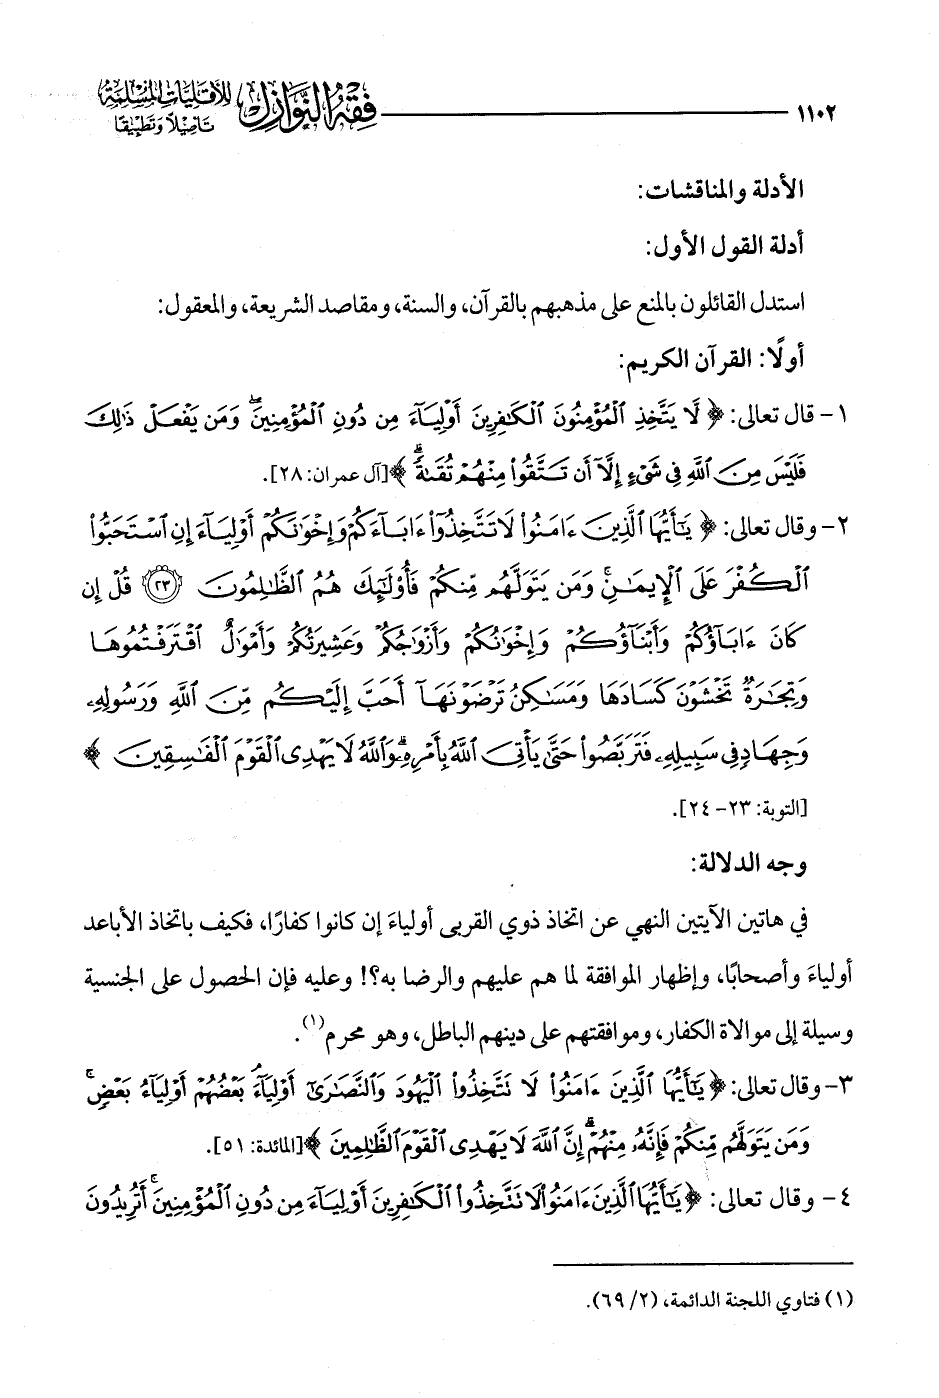 ١١٠٢ فقه النوازل للأقليات المسلمة
تأصيلاً وتطبيقاً
الأدلة والمناقشات:
أدلة القول الأول:
استدل القائلون بالمنع على مذهبهم بالقرآن، والسنة، ومقاصد الشريعة، والمعقول:
أولًا: القرآن الكريم:
١- قال تعالى: ﴿ لَا يَتَّخِذِ الْمُؤْمِنُونَ الْكَافِرِينَ أَوْلِيَاءَ مِن دُونِ الْمُؤْمِنِينَ ۖ وَمَن يَفْعَلْ ذَٰلِكَ
فَلَيْسَ مِنَ اللَّهِ فِي شَيْءٍ إِلَّا أَن تَتَّقُوا مِنْهُمْ تُقَاةً ۗ ﴾ [آل عمران: ٢٨].
٢- وقال تعالى: ﴿ يَا أَيُّهَا الَّذِينَ ءَامَنُوا لَا تَتَّخِذُوا ءَابَاءَكُمْ وَإِخْوَانَكُمْ أَوْلِيَاءَ إِنِ اسْتَحَبُّوا
الْكُفْرَ عَلَى الْإِيمَانِ ۚ وَمَن يَتَوَلَّهُم مِّنكُمْ فَأُولَٰئِكَ هُمُ الظَّالِمُونَ ﴿٢٣﴾ قُلْ إِن
كَانَ ءَابَاؤُكُمْ وَأَبْنَاؤُكُمْ وَإِخْوَانُكُمْ وَأَزْوَاجُكُمْ وَعَشِيرَتُكُمْ وَأَمْوَالٌ اقْتَرَفْتُمُوهَا
وَتِجَارَةٌ تَخْشَوْنَ كَسَادَهَا وَمَسَاكِنُ تَرْضَوْنَهَا أَحَبَّ إِلَيْكُم مِّنَ اللَّهِ وَرَسُولِهِ
وَجِهَادٍ فِي سَبِيلِهِ فَتَرَبَّصُوا حَتَّىٰ يَأْتِيَ اللَّهُ بِأَمْرِهِ ۗ وَاللَّهُ لَا يَهْدِي الْقَوْمَ الْفَاسِقِينَ ﴾
[التوبة: ٢٣-٢٤].
وجه الدلالة:
في هاتين الآيتين النهي عن اتخاذ ذوي القربى أولياءَ إن كانوا كفارًا، فكيف باتخاذ الأباعد
أولياءَ وأصحابًا، وإظهار الموافقة لما هم عليهم والرضا به؟! وعليه فإن الحصول على الجنسية
وسيلة إلى موالاة الكفار، وموافقتهم على دينهم الباطل، وهو محرم(١).
٣- وقال تعالى: ﴿ يَا أَيُّهَا الَّذِينَ ءَامَنُوا لَا تَتَّخِذُوا الْيَهُودَ وَالنَّصَارَىٰ أَوْلِيَاءَ ۘ بَعْضُهُمْ أَوْلِيَاءُ بَعْضٍ ۚ
وَمَن يَتَوَلَّهُم مِّنكُمْ فَإِنَّهُ مِنْهُمْ ۗ إِنَّ اللَّهَ لَا يَهْدِي الْقَوْمَ الظَّالِمِينَ ﴾ [المائدة: ٥١].
٤- وقال تعالى: ﴿ يَا أَيُّهَا الَّذِينَ ءَامَنُوا لَا تَتَّخِذُوا الْكَافِرِينَ أَوْلِيَاءَ مِن دُونِ الْمُؤْمِنِينَ ۚ أَتُرِيدُونَ
(١) فتاوي اللجنة الدائمة، (٢/ ٦٩).